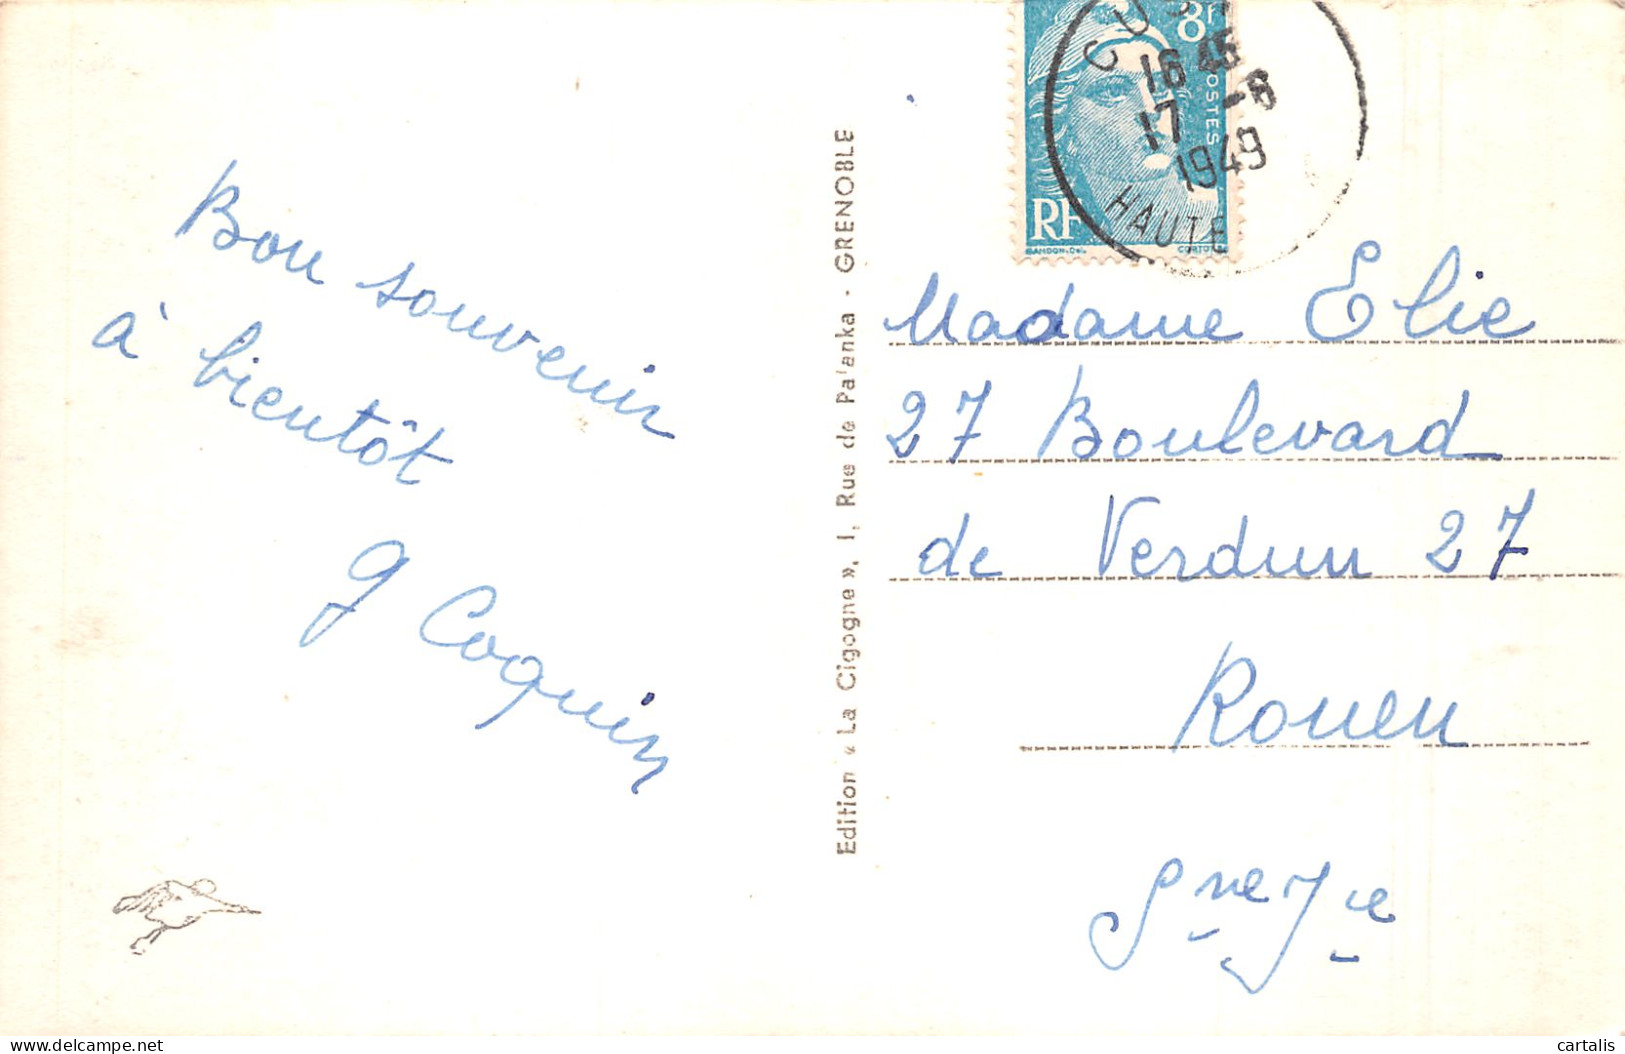 Bon souvenir
à bientôt
g Coquin
Edition « La Cigogne », 1, Rue de Pa'anka - GRENOBLE
8f
POSTES
RF
GANDON.Del.
16 45
17 -6
1949
HAUTE
Madame Elie
27 Boulevard
de Verdun 27
Rouen
Sne Jre
cartalis
delcampe.net